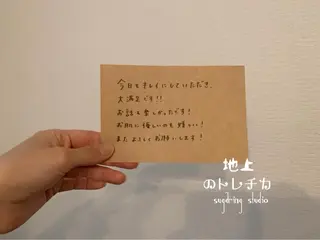 今日もキレイにしていただき、
大満足です!!
お話も楽しかったです!
お肌に優しいのも嬉しい!
またよろしくお願いします!
地上
のトレチカ
sugaring studio